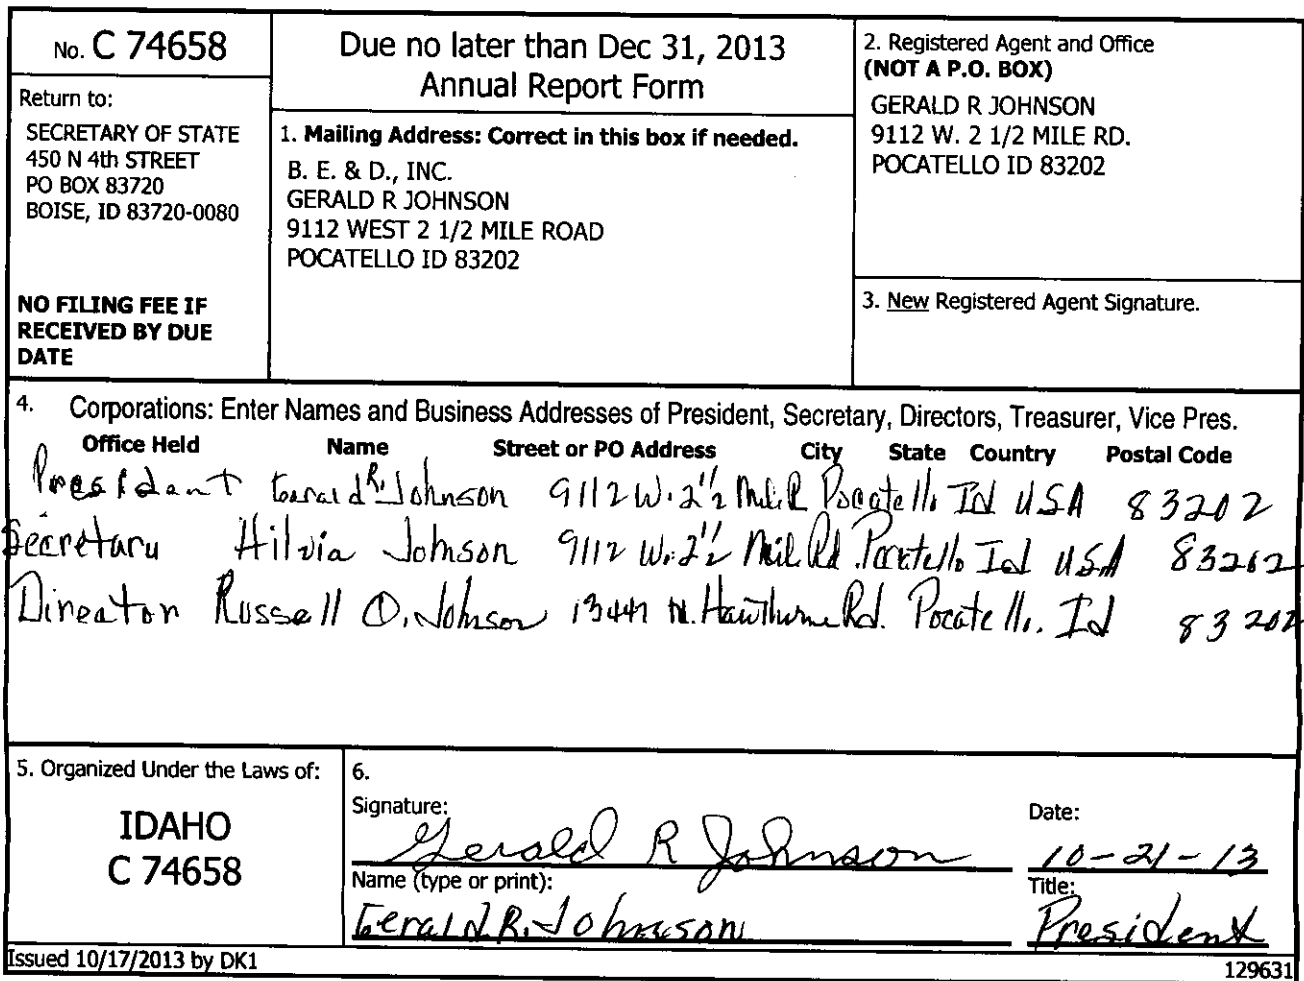 No. C 74658
Return to:
SECRETARY OF STATE
450 N 4th STREET
PO BOX 83720
BOISE, ID 83720-0080
NO FILING FEE IF
RECEIVED BY DUE
DATE
Due no later than Dec 31, 2013
Annual Report Form
1. Mailing Address: Correct in this box if needed.
B. E. & D., INC.
GERALD R JOHNSON
9112 WEST 2 1/2 MILE ROAD
POCATELLO ID 83202
2. Registered Agent and Office
(NOT A P.O. BOX)
GERALD R JOHNSON
9112 W. 2 1/2 MILE RD.
POCATELLO ID 83202
3. New Registered Agent Signature.
4. Corporations: Enter Names and Business Addresses of President, Secretary, Directors, Treasurer, Vice Pres.
Office Held Name Street or PO Address City State Country Postal Code
Presidant Gerald R. Johnson 9112 W. 2 1/2 Pocatello Id USA 83202
Secretary Hilvia Johnson 9112 W. 2 1/2 Rd. Pocatello Id USA 83202
Director Russell O. Johnson N. Hawthorne Rd. Pocatello. Id 83202
5. Organized Under the Laws of:
IDAHO
C 74658
6.
Signature: Gerald R Johnson
Date: 10-21-13
Name (type or print): Gerald R. Johnson
Title: President
Issued 10/17/2013 by DK1
129631